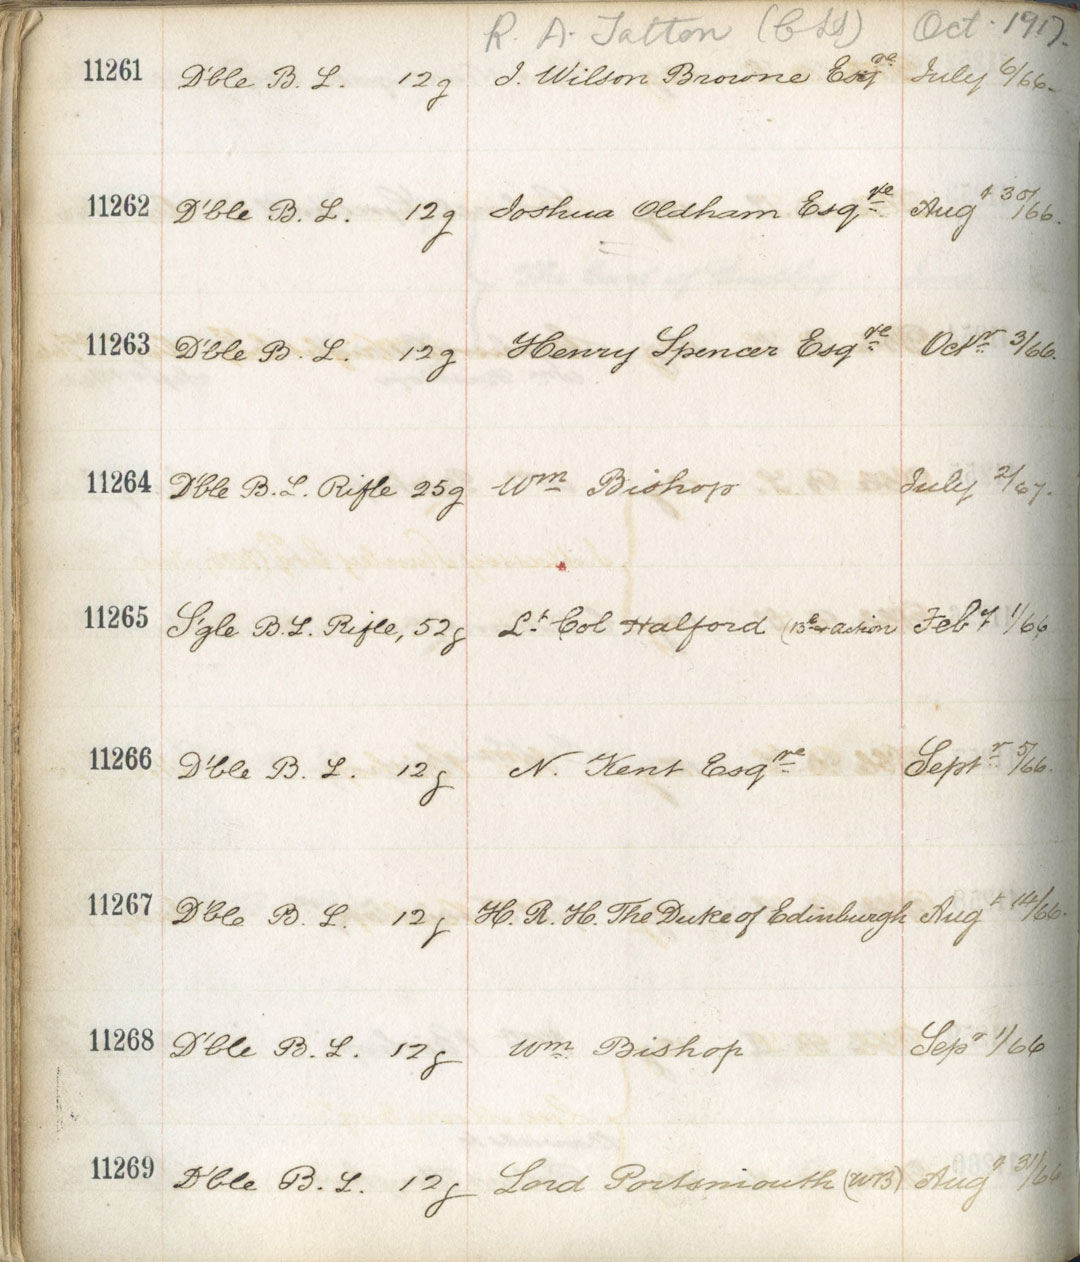 R. A. Tatton Oct. 1917.
11261 D'ble B. L. 12g J. Wilson Browne Esqre July 6/66.
11262 D'ble B. L. 12g Joshua Oldham Esqre Augt 30/66.
11263 D'ble B. L. 12g Henry Spencer Esqre Octr 3/66.
11264 D'ble B. L. Rifle 25g Wm Bishop July 2/67.
11265 S'gle B. L. Rifle, 52g Lt Col Halford action Feby 1/66
11266 D'ble B. L. 12g N. Kent Esqre Septr 5/66.
11267 D'ble B. L. 12g H. R. H. The Duke of Edinburgh Augt 14/66.
11268 D'ble B. L. 12g Wm Bishop Sepr 1/66
11269 D'ble B. L. 12g Lord Portsmouth (WB) Augt 31/66